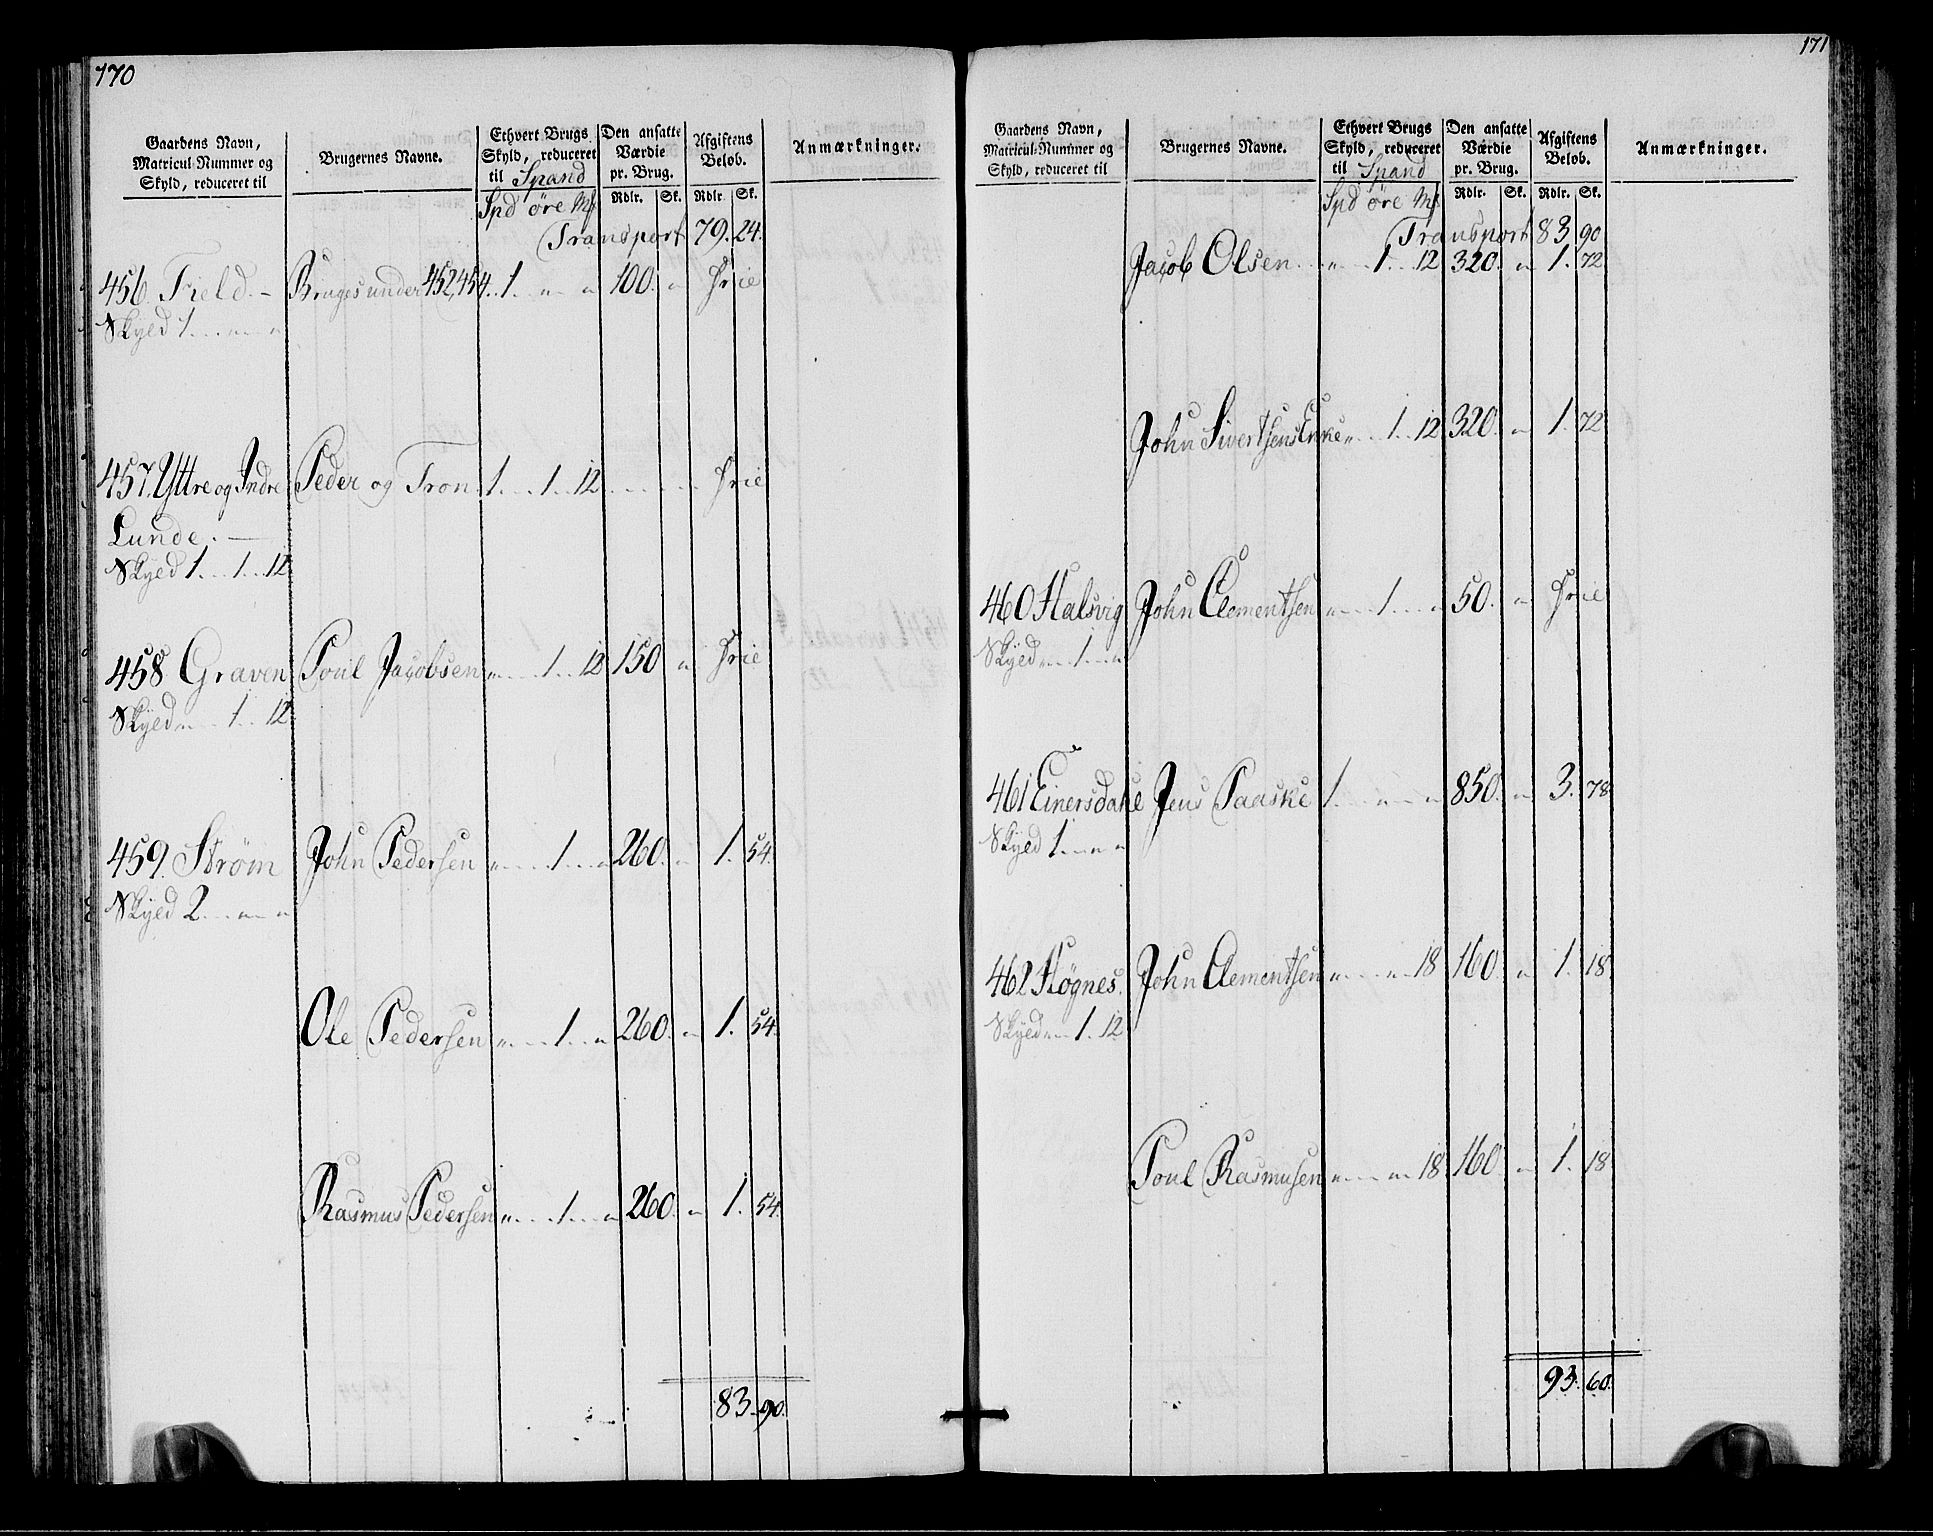 170
Gaardens Navn,
Matricul-Nummer og
Skyld, reduceret til
Brugernes Navne.
Ethvert Brugs
Skyld, reduceret
til Spand
Den ansatte
Værdie
pr. Brug.
Afgiftens
Beløb.
Anmærkninger.
Spd øre Mk Rdlr. Sk. Rdlr. Sk.
Transport 79. 24.
456. Field. - Bruges under 452, 454. 1. " " 100. " Frie
Skyld 1. " "
457. Yttre og Indre Peder og Tron 1. 1. 12 Frie
Lunde. -
Skyld 1. 1. 12.
458 Graven Poul Jacobsen " 1. 12 150 " Frie
Skyld " 1. 12.
459. Strøm John Pedersen " 1. " 260. " 1. 54.
Skyld 2. " "
Ole Pedersen " 1. " 260. " 1. 54.
Rasmus Pedersen " 1. " 260. " 1. 54.
83. 90.
171
Gaardens Navn,
Matricul-Nummer og
Skyld, reduceret til
Brugernes Navne.
Ethvert Brugs
Skyld, reduceret
til Spand
Den ansatte
Værdie
pr. Brug.
Afgiftens
Beløb.
Anmærkninger.
Spd øre Mk Rdlr. Sk. Rdlr. Sk.
Transport 83. 90
Jacob Olsen " 1. 12 320. " 1. 72
John Sivertsens Enke " 1. 12 320. " 1. 72
460 Halsvig John Clementsen " 1. " 50. " Frie
Skyld " 1. "
461 Einersdahl Jens Paaske 1. " " 850. " 3. 78
Skyld 1. " "
462 Høgnes. John Clementsen " " 18 160. " 1. 18.
Skyld " 1. 12
Poul Rasmusen " " 18. 160. " 1. 18.
93. 60.